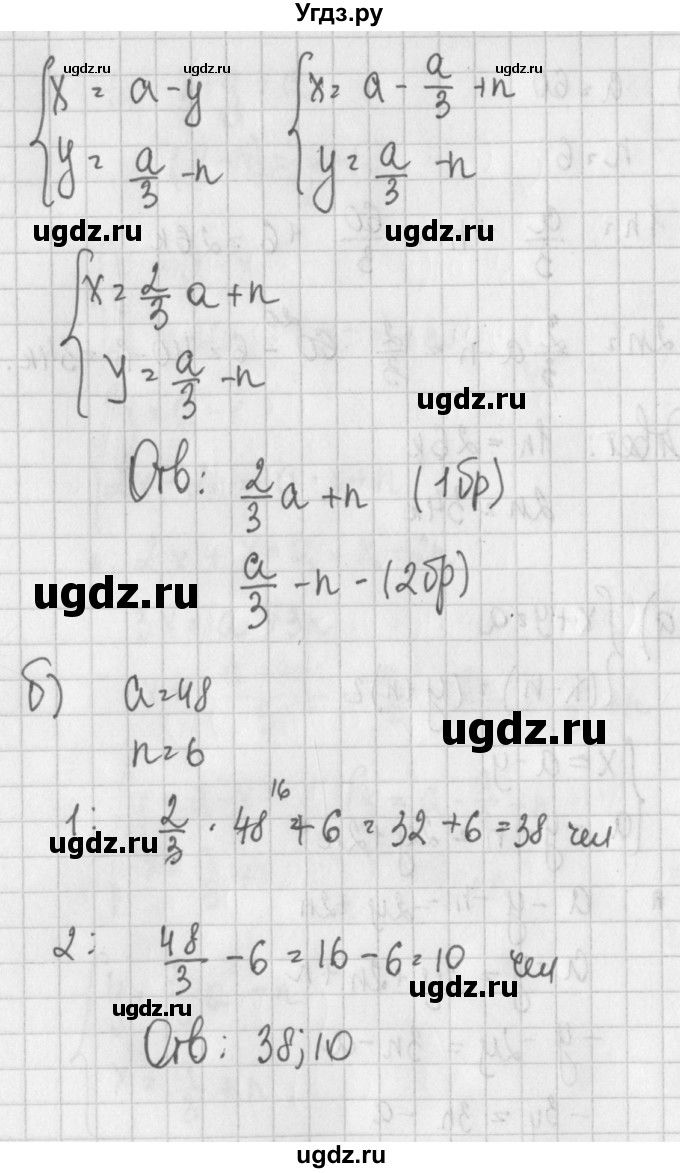 Угдз.ру
ugdz.ru ugdz.ru ugdz.ru
x = a - y
y = a/3 - n
x = a - a/3 + n
y = a/3 - n
ugdz.ru ugdz.ru
x = 2/3 a + n
y = a/3 - n
ugdz.ru
Отв: 2/3 a + n (1 бр)
a/3 - n - (2 бр)
ugdz.ru
б) a = 48
n = 6
ugdz.ru
1: 2/3 · 48 16 + 6 = 32 + 6 = 38 чел
ugdz.ru
2: 48/3 - 6 = 16 - 6 = 10 чел
ugdz.ru ugdz.ru
Отв: 38; 10
ugdz.ru